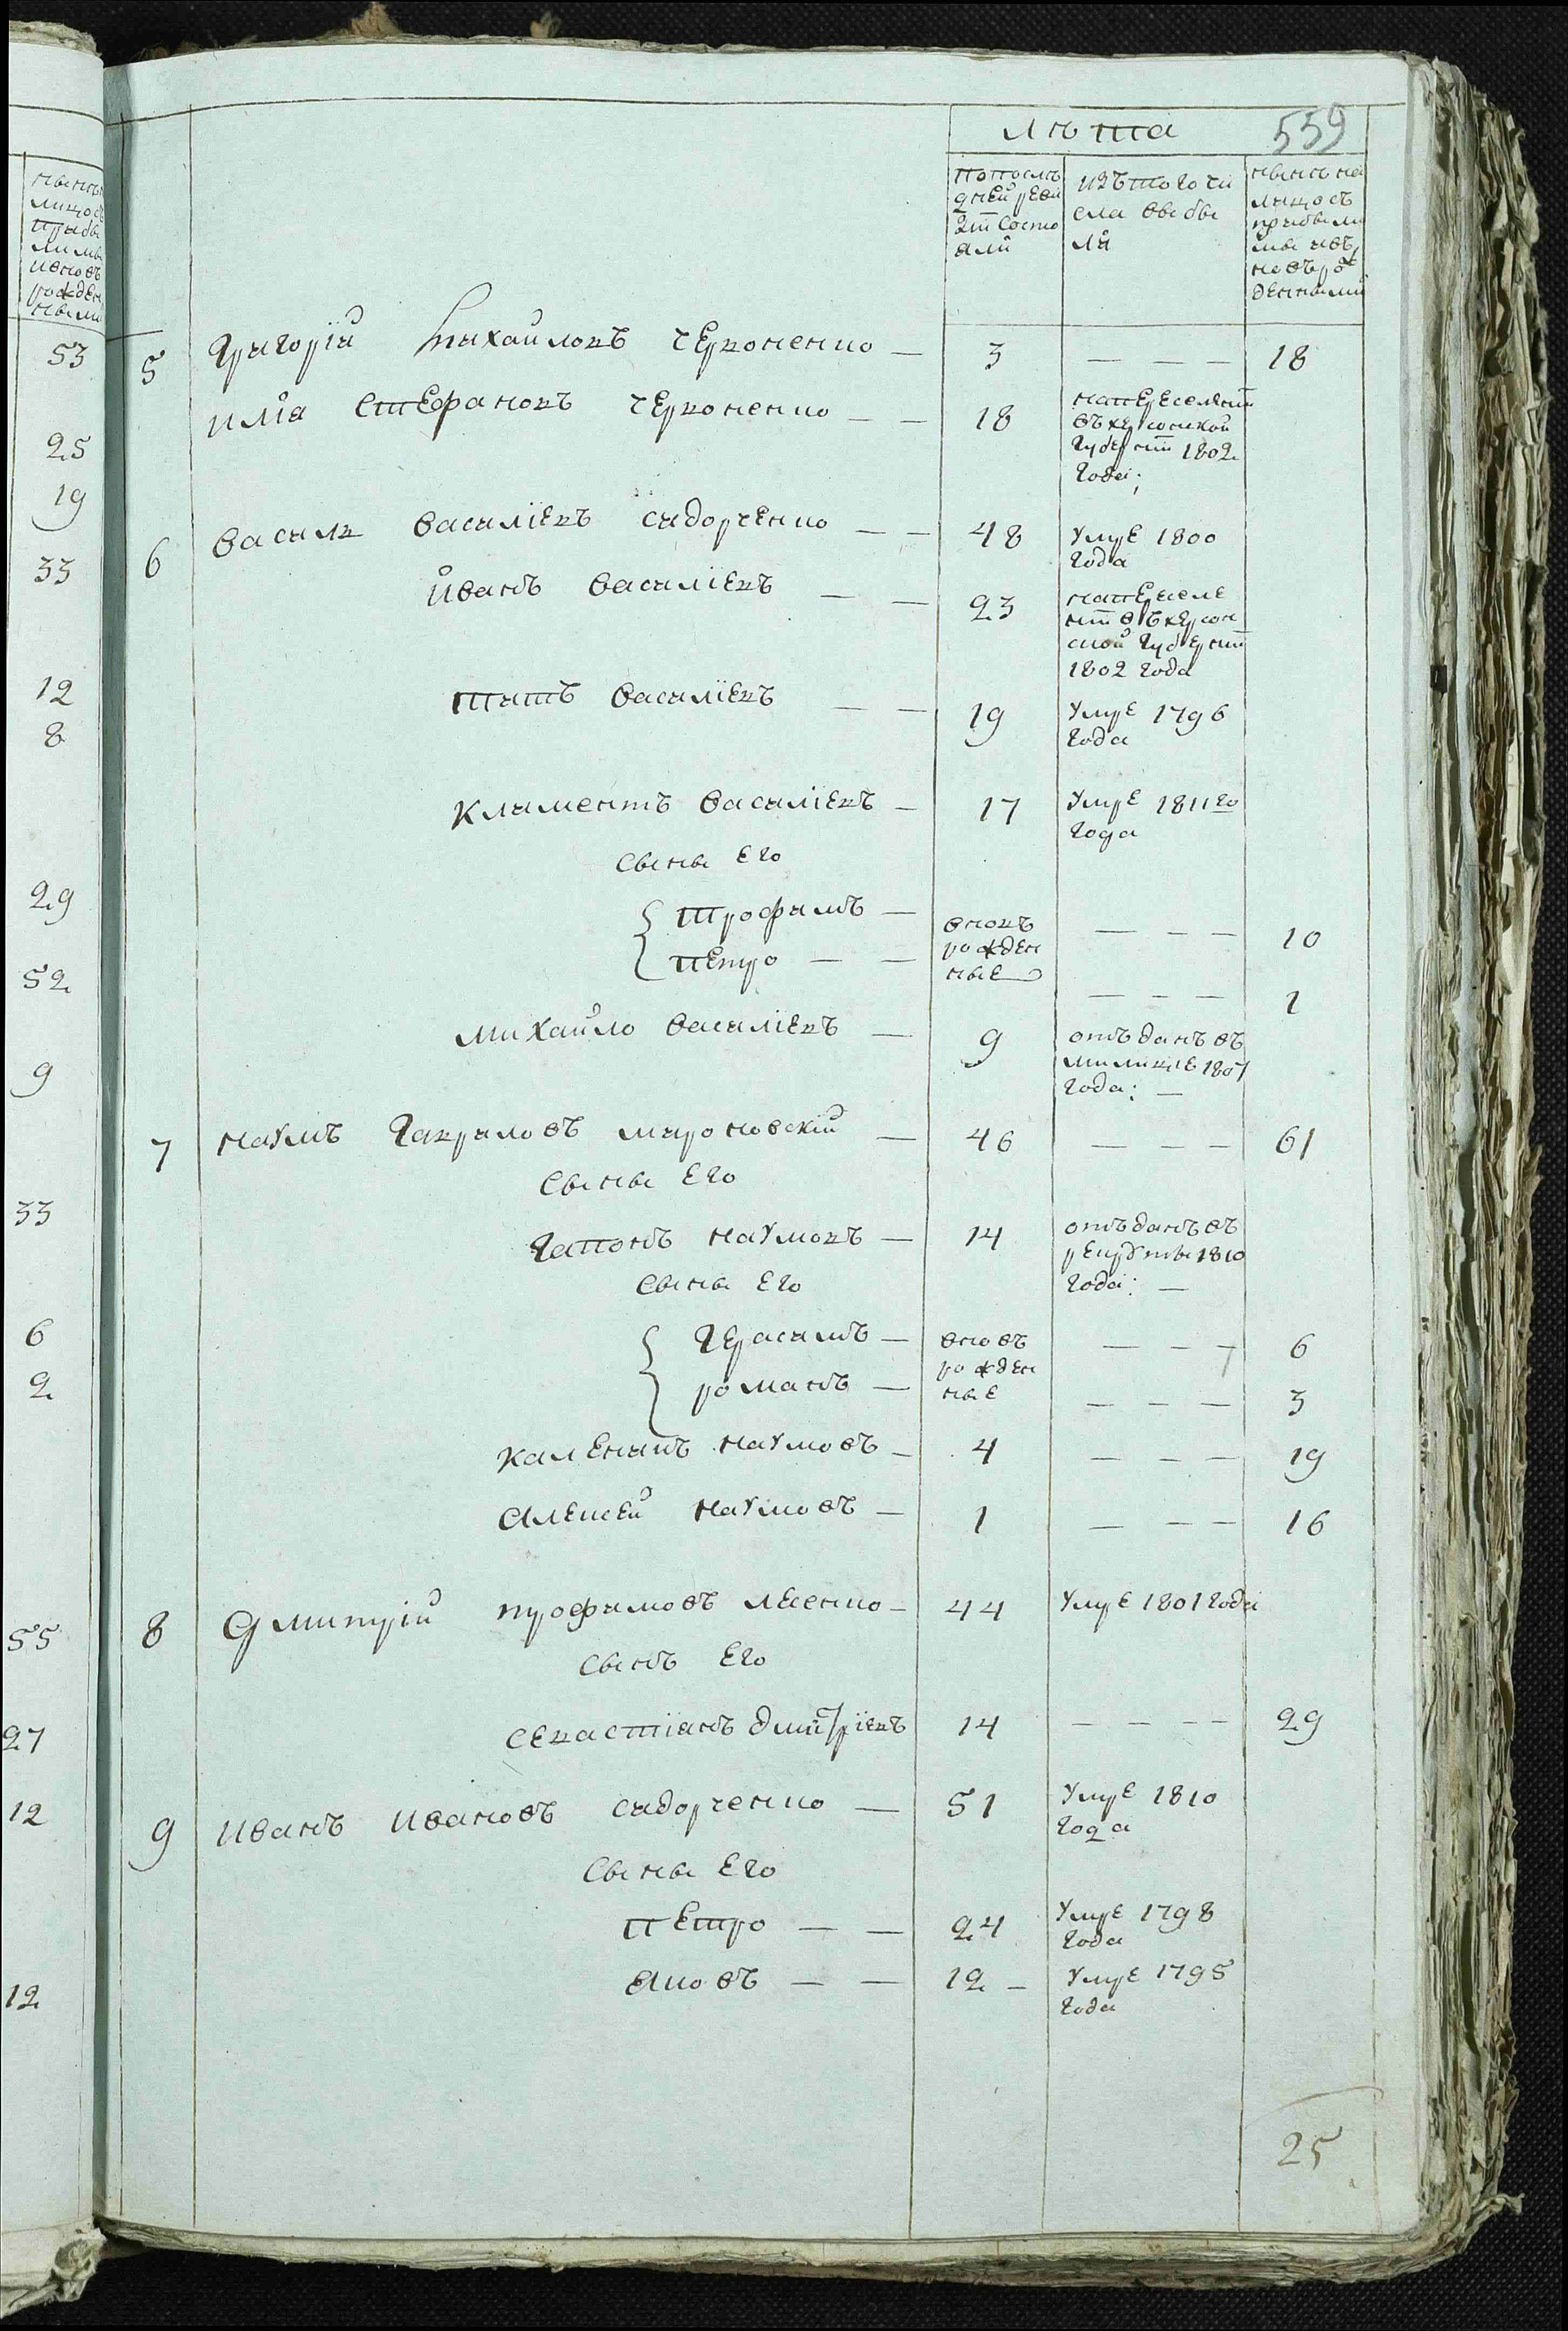 нынѣ
лицо съ
прибы
лыми
и вновь
рожден
ными
53
25
19
33
12
8
29
52
9
33
6
2
55
27
12
12
лѣта
559
по послѣ
дней реви
зіи состо
яли
изъ того чи
сла выбы
ли
нынѣ на
лицо съ
прибылы
ми и въ
новъ ро
денными
5 Григорій Михайловъ Червоненко — 3 — — — 18
Илія Стефановъ Червоненко — — 18 на переселеніи
въ херсонской
губерніи 1802
года;
6 Василь Василіевъ Сидорченко — — 48 умре 1800
года
Иванъ Василіевъ — — 23 на переселе
ніи въ херсон
ской губерніи
1802 года
Титъ Василіевъ — — 19 умре 1796
года
Климентъ Василіевъ — 17 умре 1811го
года
Сыны его
Трофимъ — вновъ
рожден
ные — — — 10
Петро — — — — — 1
Михайло Василіевъ — 9 отъданъ въ
милицію 1807
года: —
7 Наумъ Гавриловъ Мироновскій — 46 — — — 61
Сыны его
Гапонъ Наумовъ — 14 отъданъ въ
рекруты 1810
года: —
Сыны его
Герасимъ — вновъ
рожден
ные — — — 6
Романъ — — — — 3
Каленикъ Наумовъ — 4 — — — 19
Алексей Наумовъ — 1 — — — 16
8 Дмитрій Трофимовъ Лесенко — 44 умре 1801 года
Сынъ его
Севастіанъ Дмитріевъ 14 — — — — 29
9 Иванъ Ивановъ Сидорченко — 51 умре 1810
года
Сыны его
Петро — — 24 умре 1798
года
Яковъ — — 12 — умре 1795
года
25